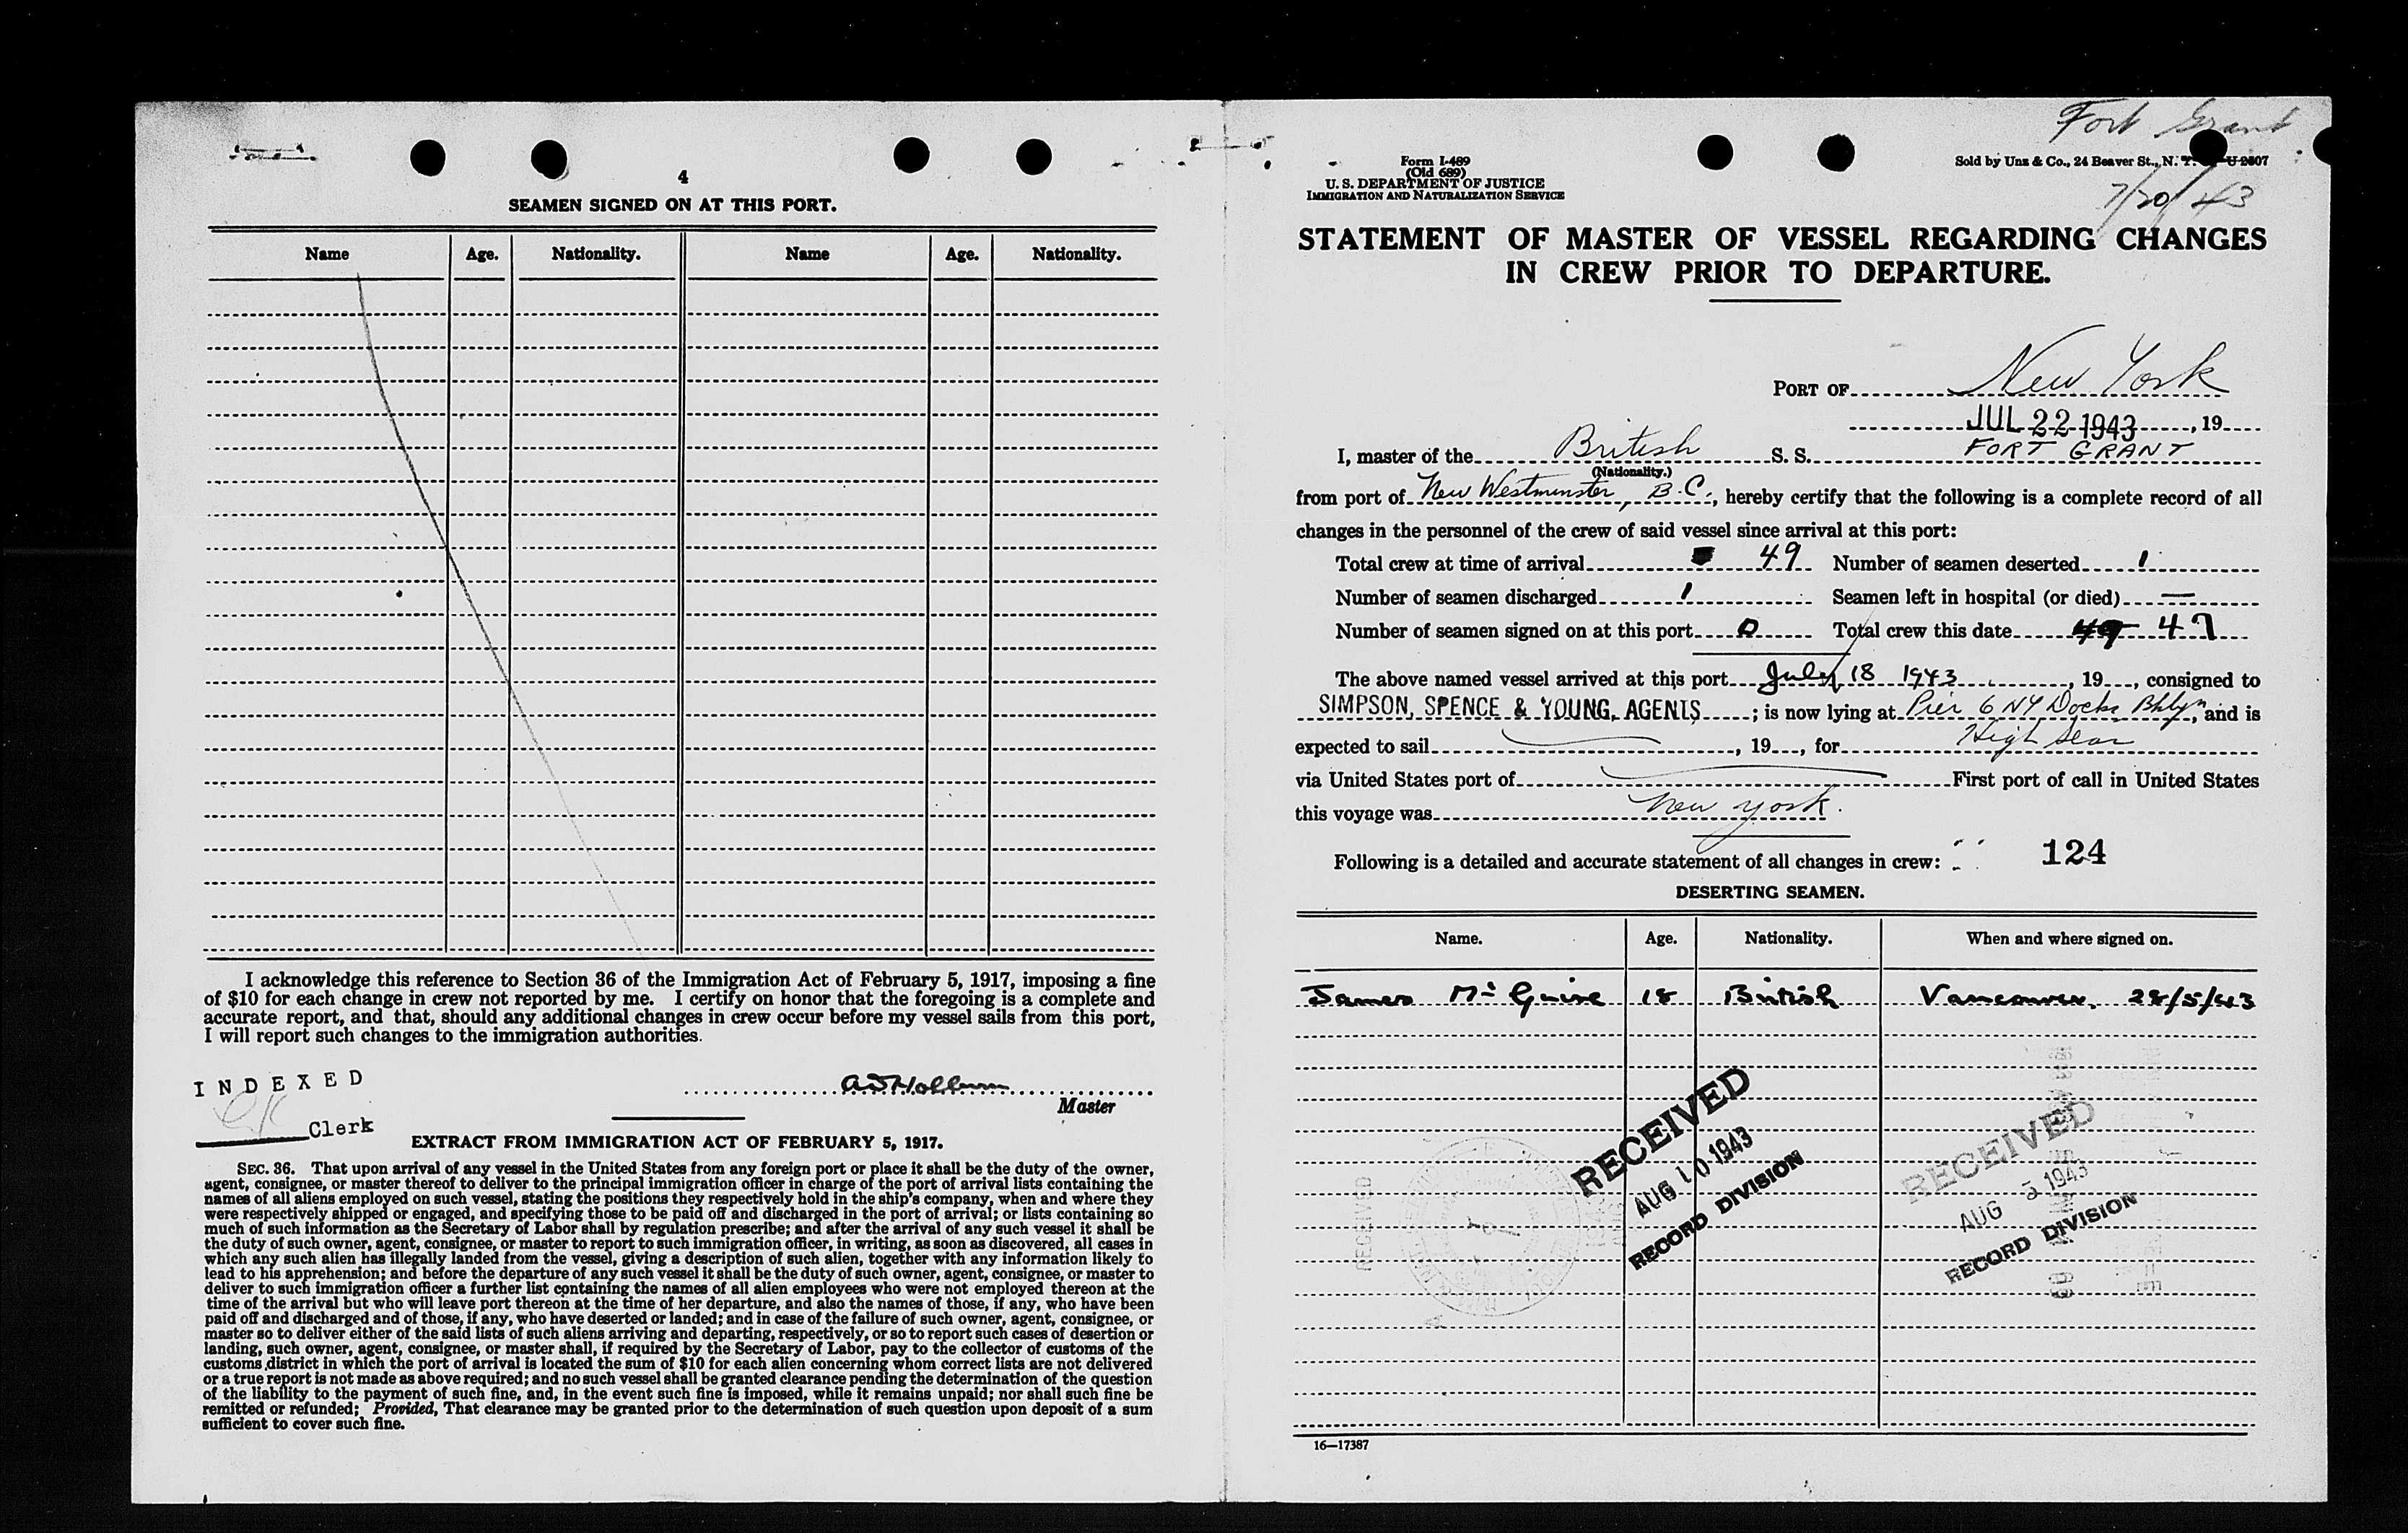 4
SEAMEN SIGNED ON AT THIS PORT.
Name Age. Nationality. Name Age. Nationality.
I acknowledge this reference to Section 36 of the Immigration Act of February 5, 1917, imposing a fine
of $10 for each change in crew not reported by me. I certify on honor that the foregoing is a complete and
accurate report, and that, should any additional changes in crew occur before my vessel sails from this port,
I will report such changes to the immigration authorities.
INDEXED
Master
Clerk
EXTRACT FROM IMMIGRATION ACT OF FEBRUARY 5, 1917.
SEC. 36. That upon arrival of any vessel in the United States from any foreign port or place it shall be the duty of the owner,
agent, consignee, or master thereof to deliver to the principal immigration officer in charge of the port of arrival lists containing the
names of all aliens employed on such vessel, stating the positions they respectively hold in the ship's company, when and where they
were respectively shipped or engaged, and specifying those to be paid off and discharged in the port of arrival; or lists containing so
much of such information as the Secretary of Labor shall by regulation prescribe; and after the arrival of any such vessel it shall be
the duty of such owner, agent, consignee, or master to report to such immigration officer, in writing, as soon as discovered, all cases in
which any such alien has illegally landed from the vessel, giving a description of such alien, together with any information likely to
lead to his apprehension; and before the departure of any such vessel it shall be the duty of such owner, agent, consignee, or master to
deliver to such immigration officer a further list containing the names of all alien employees who were not employed thereon at the
time of the arrival but who will leave port thereon at the time of her departure, and also the names of those, if any, who have been
paid off and discharged and of those, if any, who have deserted or landed; and in case of the failure of such owner, agent, consignee, or
master so to deliver either of the said lists of such aliens arriving and departing, respectively, or so to report such cases of desertion or
landing, such owner, agent, consignee, or master shall, if required by the Secretary of Labor, pay to the collector of customs of the
customs district in which the port of arrival is located the sum of $10 for each alien concerning whom correct lists are not delivered
or a true report is not made as above required; and no such vessel shall be granted clearance pending the determination of the question
of the liability to the payment of such fine, and, in the event such fine is imposed, while it remains unpaid; nor shall such fine be
remitted or refunded; Provided, That clearance may be granted prior to the determination of such question upon deposit of a sum
sufficient to cover such fine.
Fort Grant
Form I-489
(Old 689)
U. S. DEPARTMENT OF JUSTICE
IMMIGRATION AND NATURALIZATION SERVICE
Sold by Unz & Co., 24 Beaver St., N. Y.
7/20/43
STATEMENT OF MASTER OF VESSEL REGARDING CHANGES
IN CREW PRIOR TO DEPARTURE.
PORT OF New York
JUL 22 1943, 19
I, master of the British S. S. FORT GRANT
(Nationality.)
from port of New Westminster, B.C., hereby certify that the following is a complete record of all
changes in the personnel of the crew of said vessel since arrival at this port:
Total crew at time of arrival 49 Number of seamen deserted 1
Number of seamen discharged 1 Seamen left in hospital (or died) —
Number of seamen signed on at this port 0 Total crew this date 49 47
The above named vessel arrived at this port July 18 1943, 19, consigned to
SIMPSON, SPENCE & YOUNG, AGENTS; is now lying at Pier 6 NY Docks Bklyn, and is
expected to sail, 19, for High Seas
via United States port of First port of call in United States
this voyage was New York.
Following is a detailed and accurate statement of all changes in crew: 124
DESERTING SEAMEN.
Name. Age. Nationality. When and where signed on.
James McGuire 18 British Vancouver. 28/5/43
RECEIVED
AUG 10 1943
RECORD DIVISION
RECEIVED
AUG 3 1943
RECORD DIVISION
RECEIVED
16—17387